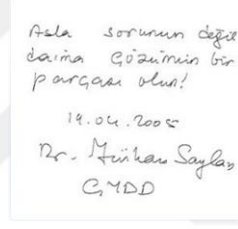 Asla sorunun değil
daima çözümün bir
parçası olun!
19.04.2005
Dr. Türkan Saylan
ÇYDD